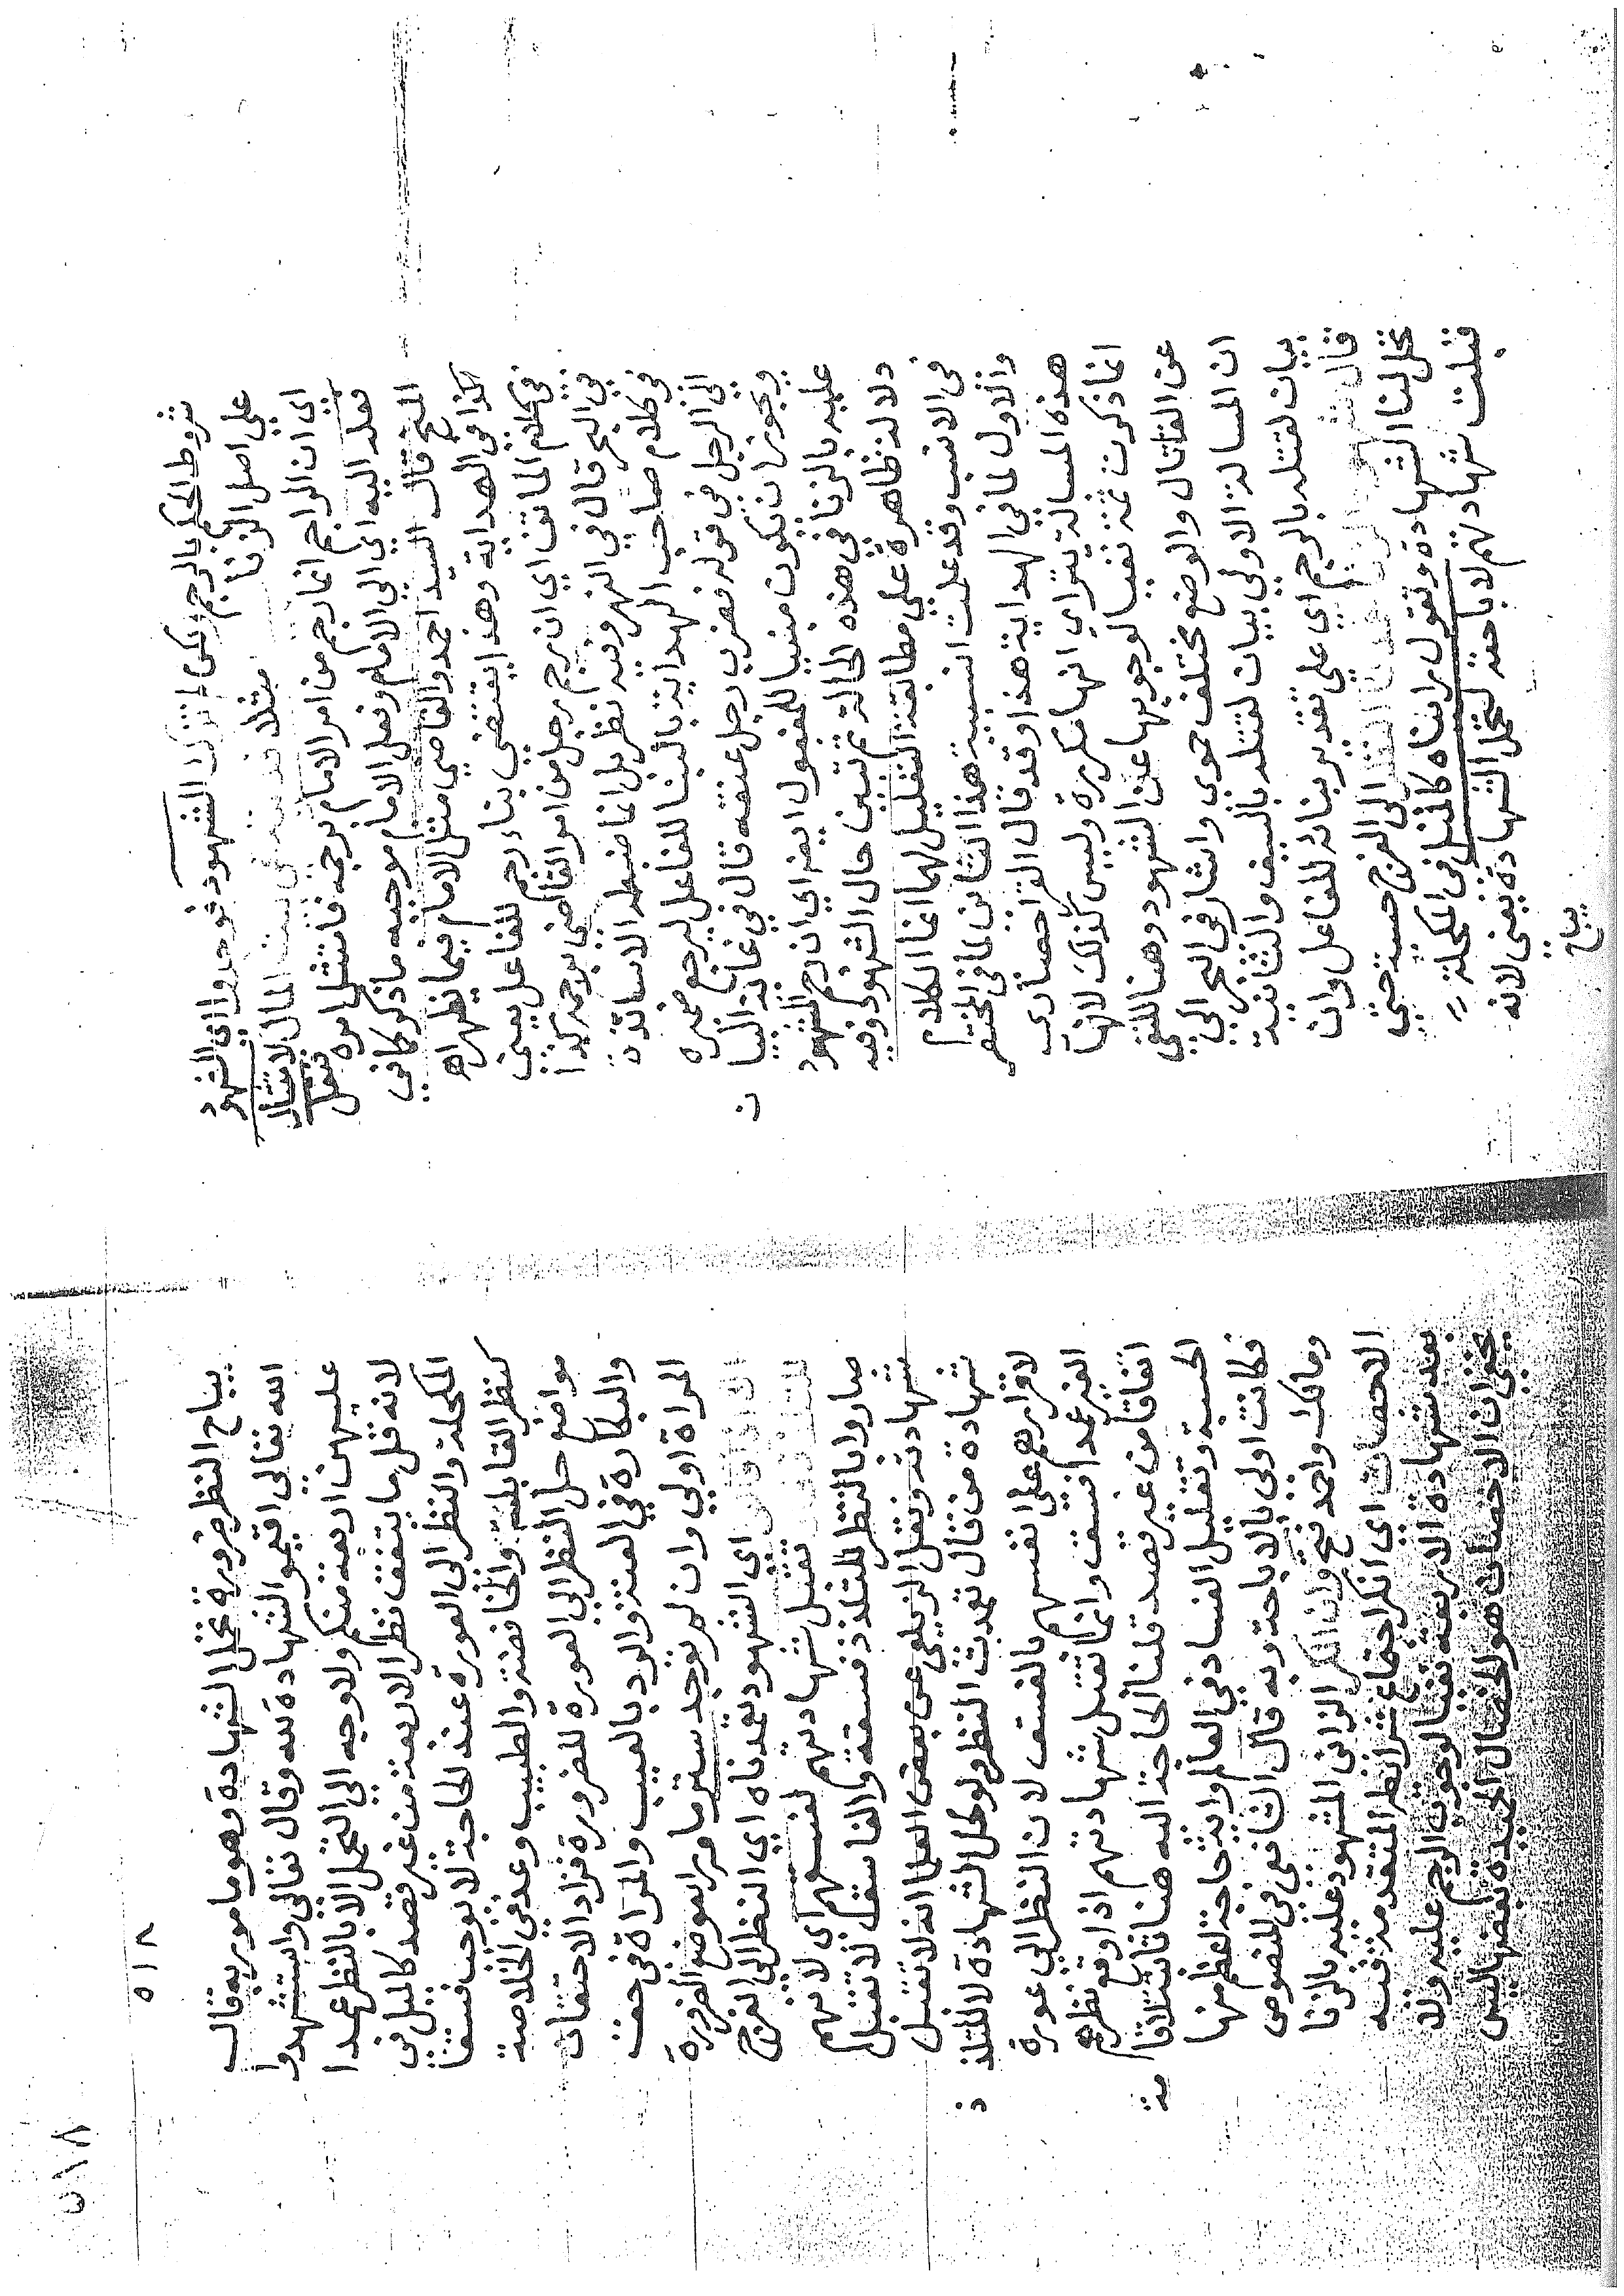 شروط الحكم بالرجم الشهود فوجدوا اي الشهود
علي اصل الزنا مثلا المال لامتثال
اي ان الراجم انما رجم من امر الامام برجمه فامتثل امره فنقل
فعله اليه اي الي الامام وفعل الامام موجبه ما ذكر كما في
المنح قال السيد احمد والقاضي مثل الامام فيما يظهر اه
كذا في الهداية وهذا يقتضي بناء رجم للفاعل يعين
في كلام الماتن اي ان رجم رجل من امر القاضي برجمه كذا
في البحر قال في النهر وفيه نظر بل انما ضبطه الاساتذة
في كلام صاحب الهداية بالبنا للفاعل ليرجع ضميره
الي الرجل في قوله فضرب رجل عنقه قال في غاية البيا ن
ويجوز ان يكون مبنيا للمفعول ايضا اي ان رجم المشهود
عليه بالزنا في هذه الحالة ثم تبين حال الشهود وفيه
دلالة ظاهرة علي مطابقة التعليل لهما انما الكلام
في الانسب وقد علمت انسبية هذا الثاني لما في المختصر
والاول لما في الهداية هذا وقد قال القرا حصاري
هذه المسالة يتراي انها مكررة وليس كذلك لانها
انما ذكرت ثمة نفيا لوجوبها عن الشهود وهنا للنفي
عن القاتل والوضع مختلف حموي واشار في البحر الي
ان المسالة الاولي بيان لقتله بالسيف والثانية
بيان لقتله بالرجم اي علي تقدير بنائه للفاعل وان
قال النظر الي الفرج حسبة حتي
تحل لنا الشهادة ونقول رايناه كالميل في المكحلة
قبلت شهادتهم لاباحته لتحمل الشهادة يعني لانه
يباح
٥١٨
٥١٨
يباح النظر ضرورة تحمل الشهادة وهو مامور به قال
الله تعالي اقيموا الشهادة لله وقال تعالي واستشهدوا
عليهن اربعة منكم ولا وجه الي التحمل الا بالنظر عمدا
لانه قل ما يتفق نظر الاربعة من غير قصد كالميل في
المكحلة والنظر الي العورة عند الحاجة لا يوجب فسقا
كنظر القابلة والخافضة والطبيب وعد في الخلاصة
مواضع حل النظر الي العورة للضرورة فزاد الاحتقان
والبكارة في العنة والرد بالعيب والمراة في حق
المراة اولي وان لم يوجد ستر ما ورا موضع الضرورة
اي الشهود تعمدناه اي النظر الي الفرج
للتلذذ تقبل شهادتهم لفسقهم اي لانهم
صاروا بالنظر للتلذذ فسقة والفاسق لا تقبل
شهادته ونقل الزيلعي عن بعض العلما انه لا تقبل
شهادة من قال تعمدت النظر ولو لحل الشهادة لا للتلذ ذ
لاقرارهم علي انفسهم بالفسق لان النظر الي عورة
الغير عمدا فسق وانما تقبل شهادتهم اذا وقع نظرهم
اتفاقا من غير قصد قلنا الحاجة اليه هنا ثابتة لاقا مة
الحسبة وتقليل الفساد في العالم واية حاجة اعظم منها
فكانت اولي بالاباحة وبه قال الشافعي في المنصوص
ومالك واحمد فتح وان انكر الزاني المشهود عليه بالزنا
الاحصان اي انكر اجتماع شرائطه المتقدمة فيه
بعد شهادة الاربعة نفيا لوجوب الرجم عليه ولا
يخفي ان الاحصان هو الخصال الحميدة بعضها ليس